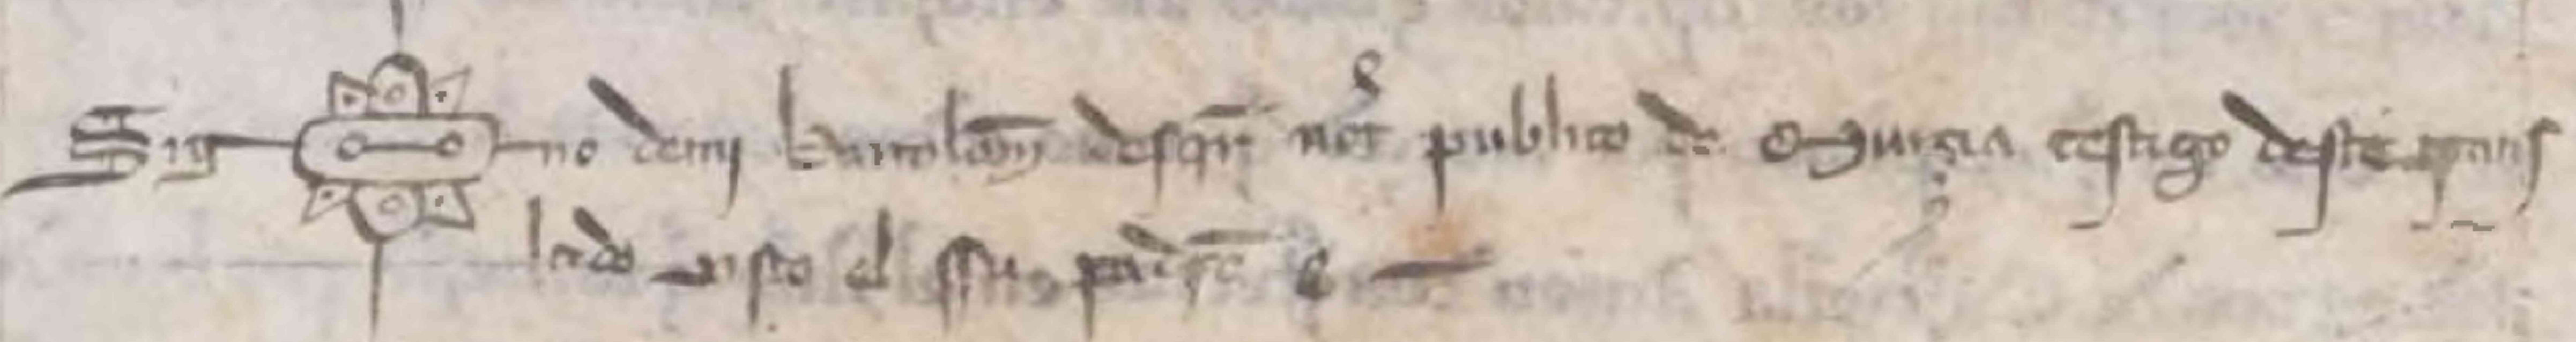 Sig-no de mi Bartolom desqr not publico de Murçia testigo deste trans
lado visto el ssu